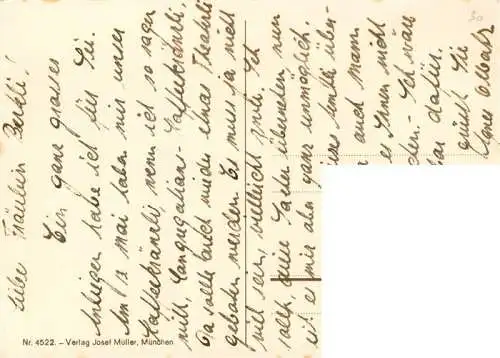 Liebe Fräulein Berkli!
Ein ganz grosses
Anliegen habe ich für Sie.
Am 7. Mai haben wir unser
Kaffeekränzli, wenn ich so sagen
will, Congregations-Kaffeekränzli.
Da sollte auch wieder etwas Theäterli
geboten werden. Es muss ja nicht
viel sein, vielleicht Ich
sollte, eine Sachen übernehmen nun
ist es mir aber ganz unmöglich.
über-
auch wenn
es Ihnen nicht
Ich wäre
dafür.
grüsst Sie
Nr. 4522. – Verlag Josef Müller, München
30